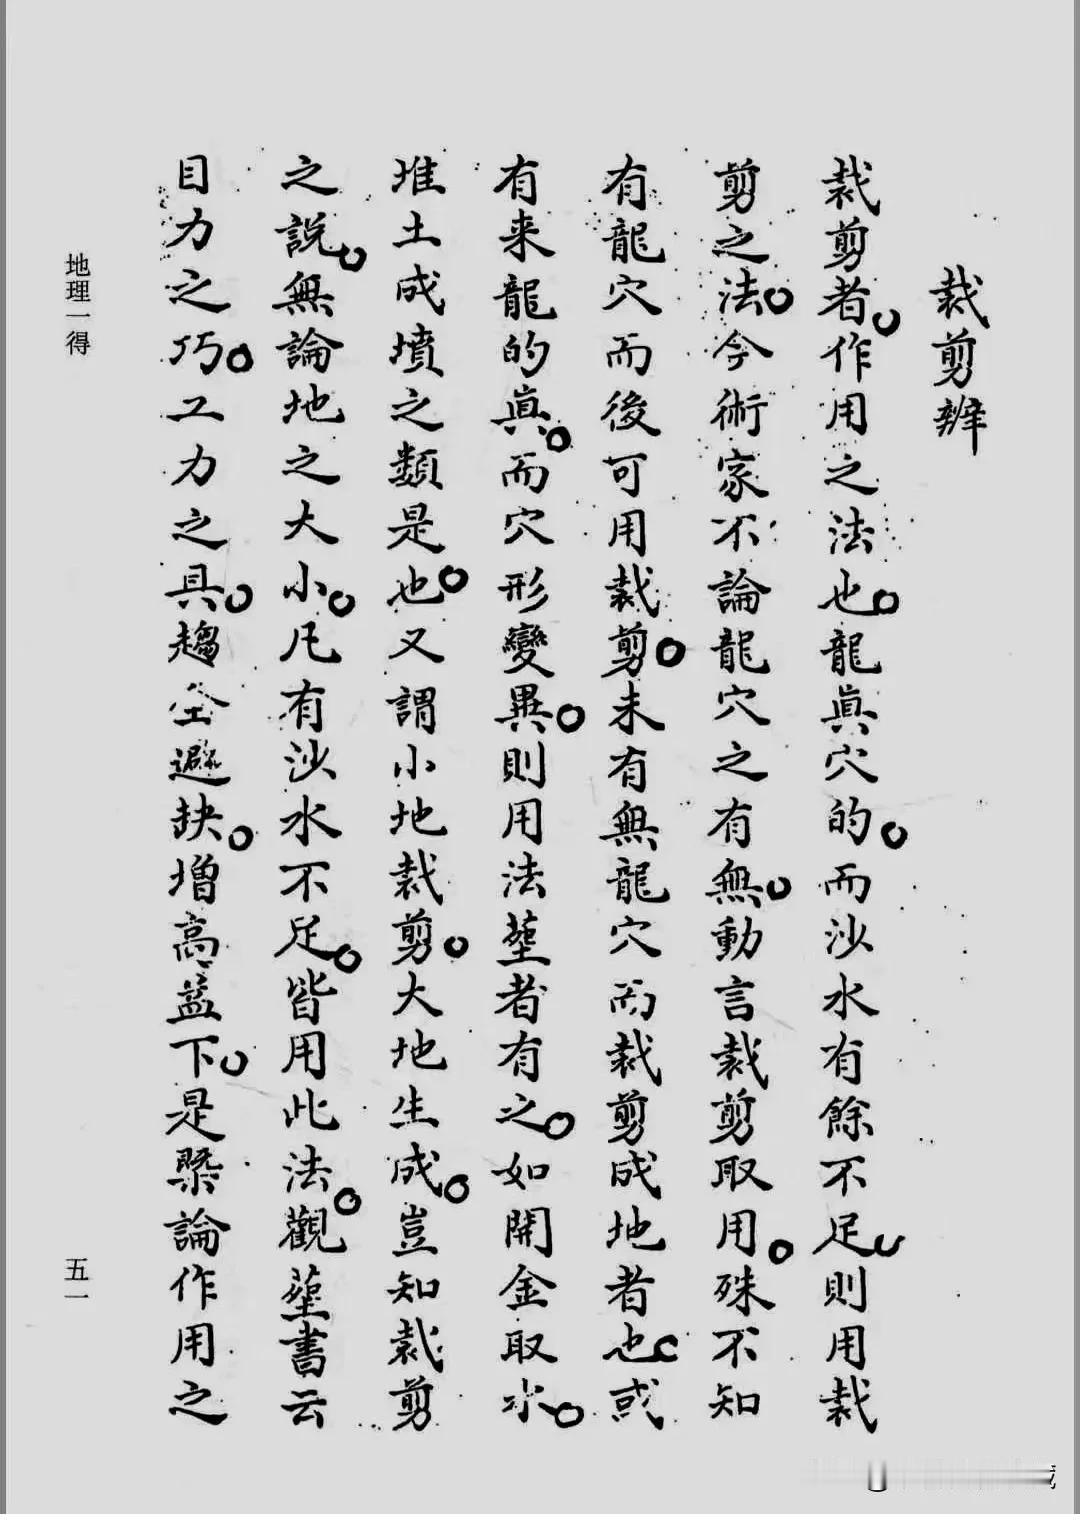 裁剪辨
裁剪者作用之法也龍眞穴的而沙水有餘不足則用裁
剪之法今術家不論龍穴之有無動言裁剪取用殊不知
有龍穴而後可用裁剪未有無龍穴而裁剪成地者也或
有来龍的眞而穴形變異則用法塟者有之如開金取水
堆土成墳之類是也又謂小地裁剪大地生成豈知裁剪
之説無論地之大小凡有沙水不足皆用此法觀塟書云
目力之巧工力之具趨全避缺增高益下是槩論作用之
地理一得
五一